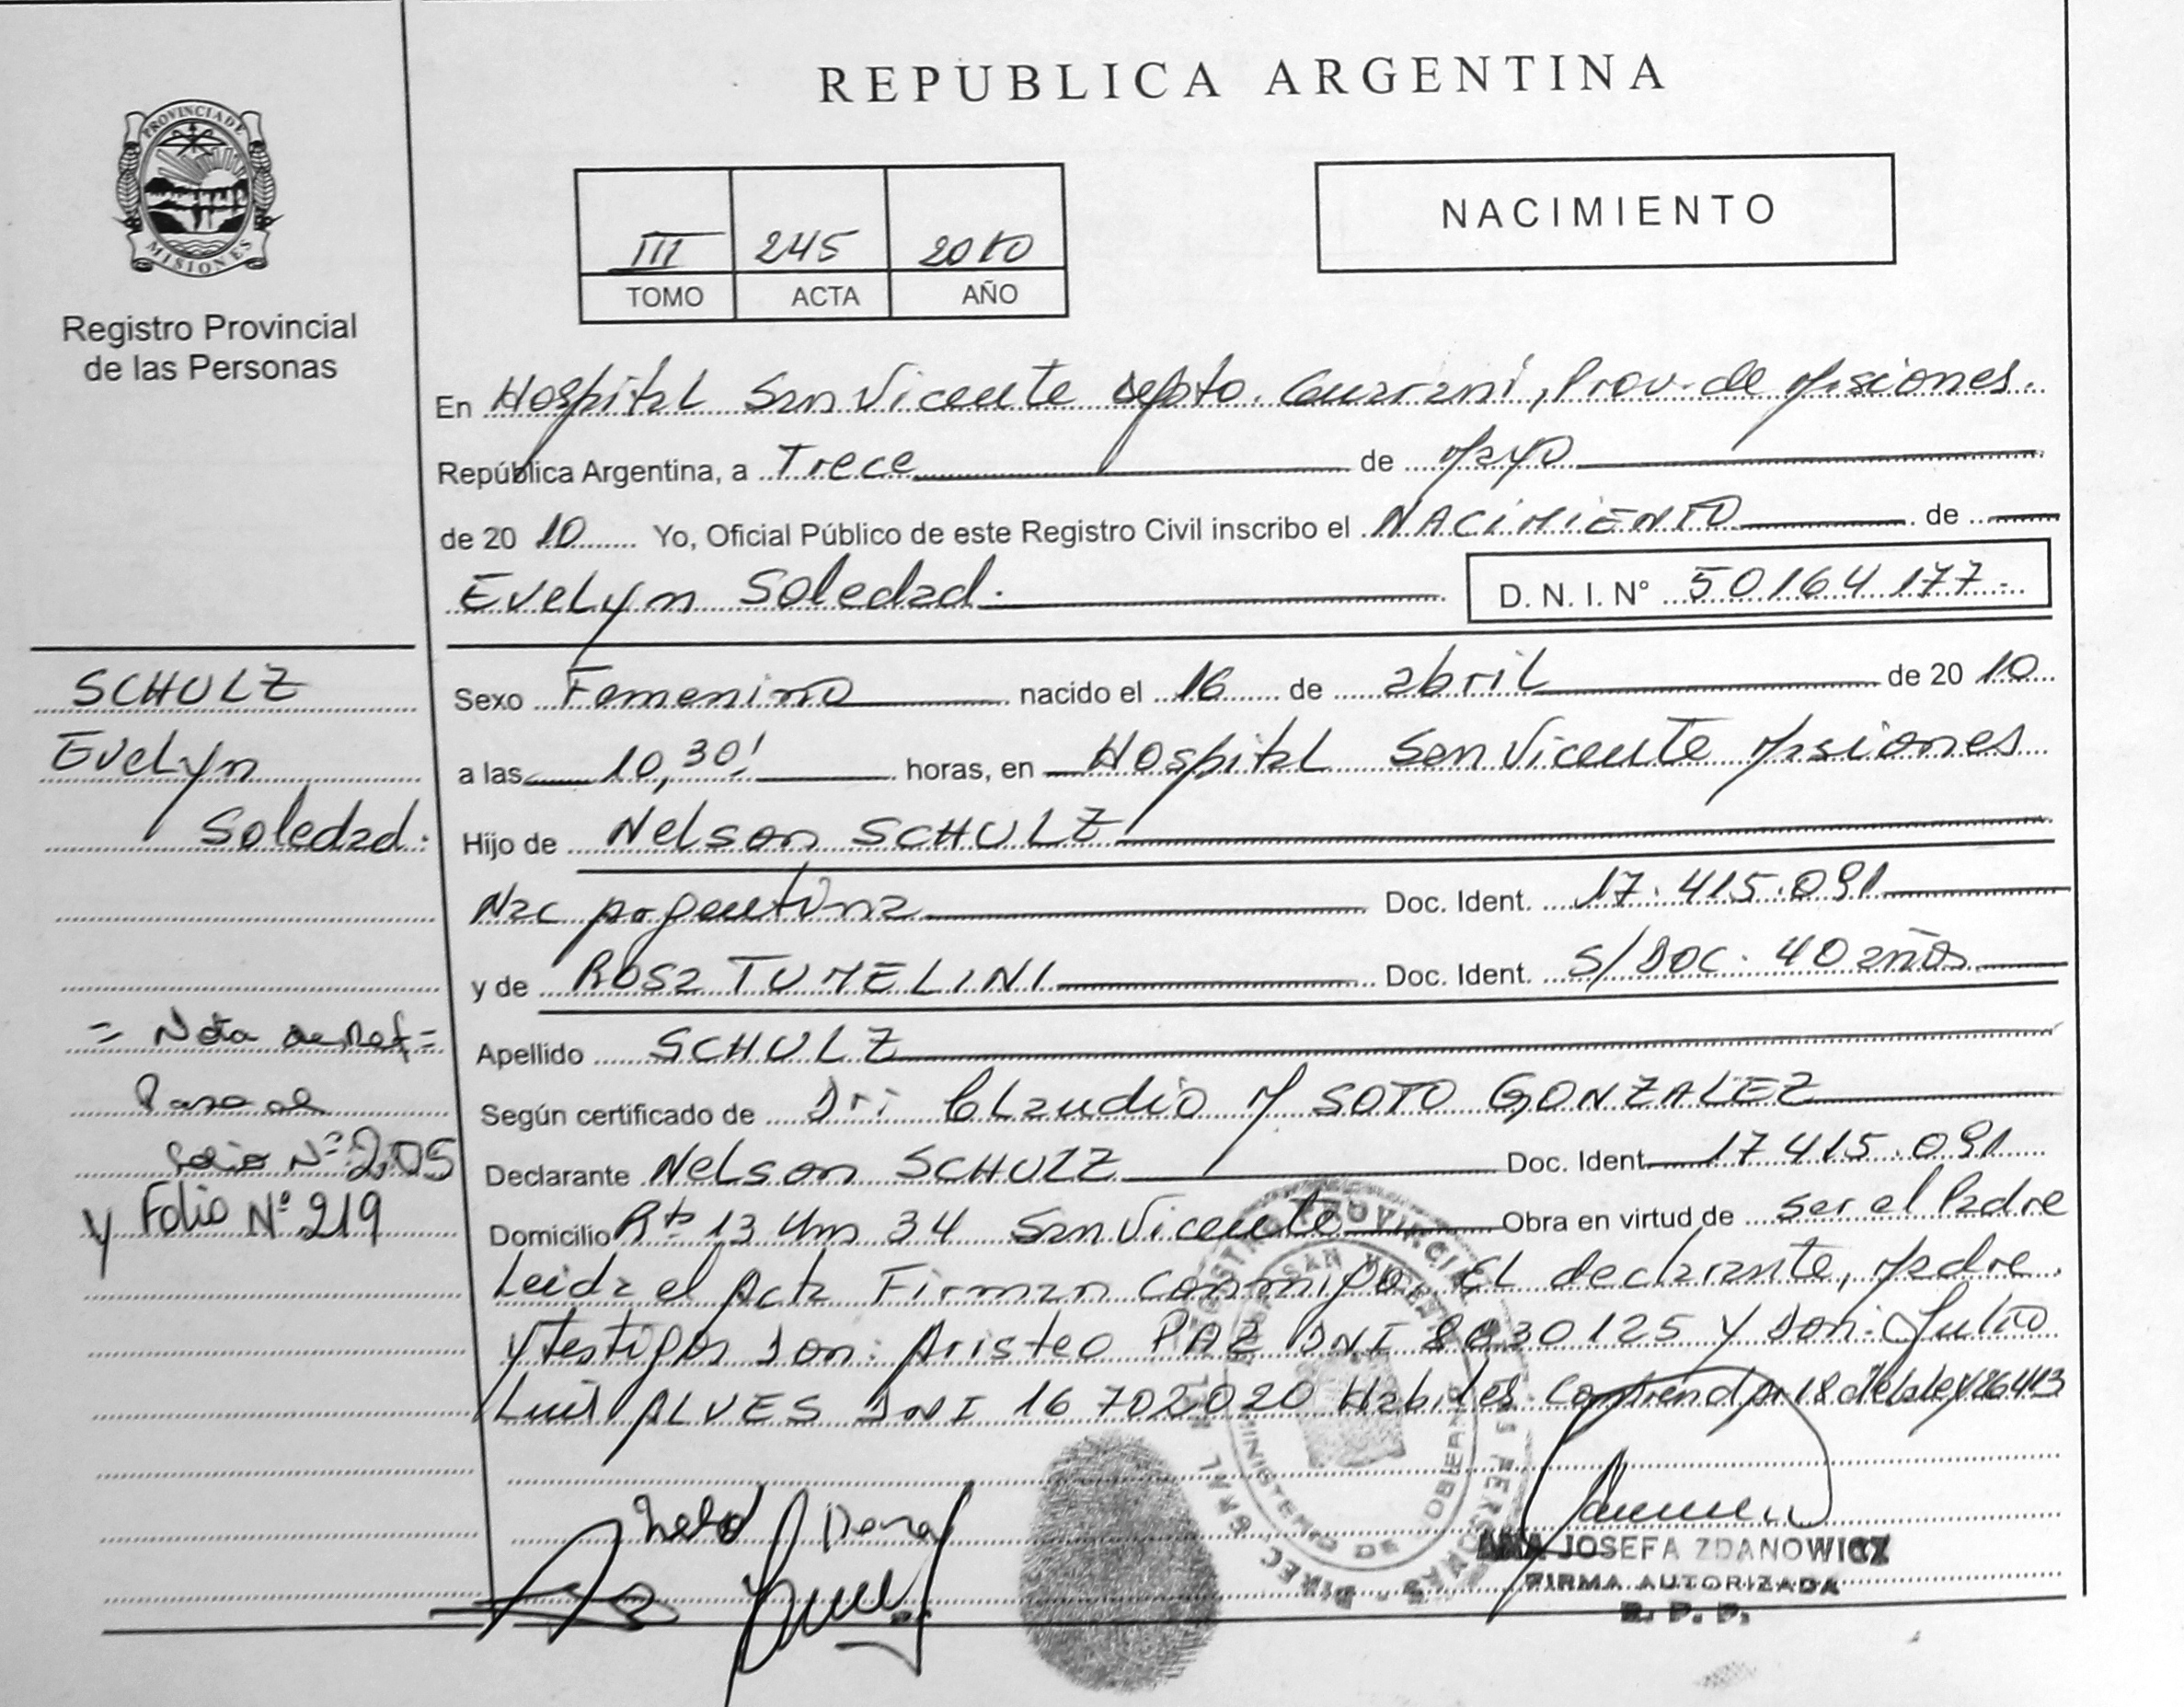 REPUBLICA ARGENTINA
PROVINCIA DE
MISIONES
Registro Provincial
de las Personas
III 245 2010
TOMO ACTA AÑO
NACIMIENTO
En Hospital San Vicente depto. Guarani, Prov. de Misiones.
República Argentina, a Trece de Mayo
de 20 10 Yo, Oficial Público de este Registro Civil inscribo el NACIMIENTO de
Evelyn Soledad.
D. N. I. N° 50164177.-
SCHULZ
Evelyn
Soledad.
Sexo Femenino nacido el 16 de abril de 20 10
a las 10,30' horas, en Hospital San Vicente Misiones
Hijo de Nelson SCHULZ
Nac Argentina Doc. Ident. 17.415.091
y de Rosa TUMELINI Doc. Ident. S/Doc. 40 años
Apellido SCHULZ
Según certificado de Dr: Claudio M SOTO GONZALEZ
Declarante Nelson SCHULZ Doc. Ident 17415.091
Domicilio Rta 13 Km 34 San Vicente Obra en virtud de ser el Padre
Leida el Acta Firman conmigo, El declarante, Madre.
y testigos Don: Aristeo PAZ DNI 8030125 y Don: Julio
Luis ALVES DNI 16702020 Habiles. 18 de la ley 26413
= Nota de Ref =
Pasa al
folio Nº 205
y Folio Nº 219
REGISTRO PROVINCIAL DE LAS PERSONAS - DIREC. GRAL.
SAN VICENTE
MINISTERIO DE GOBIERNO
ANA JOSEFA ZDANOWICZ
FIRMA AUTORIZADA
R. P. P.